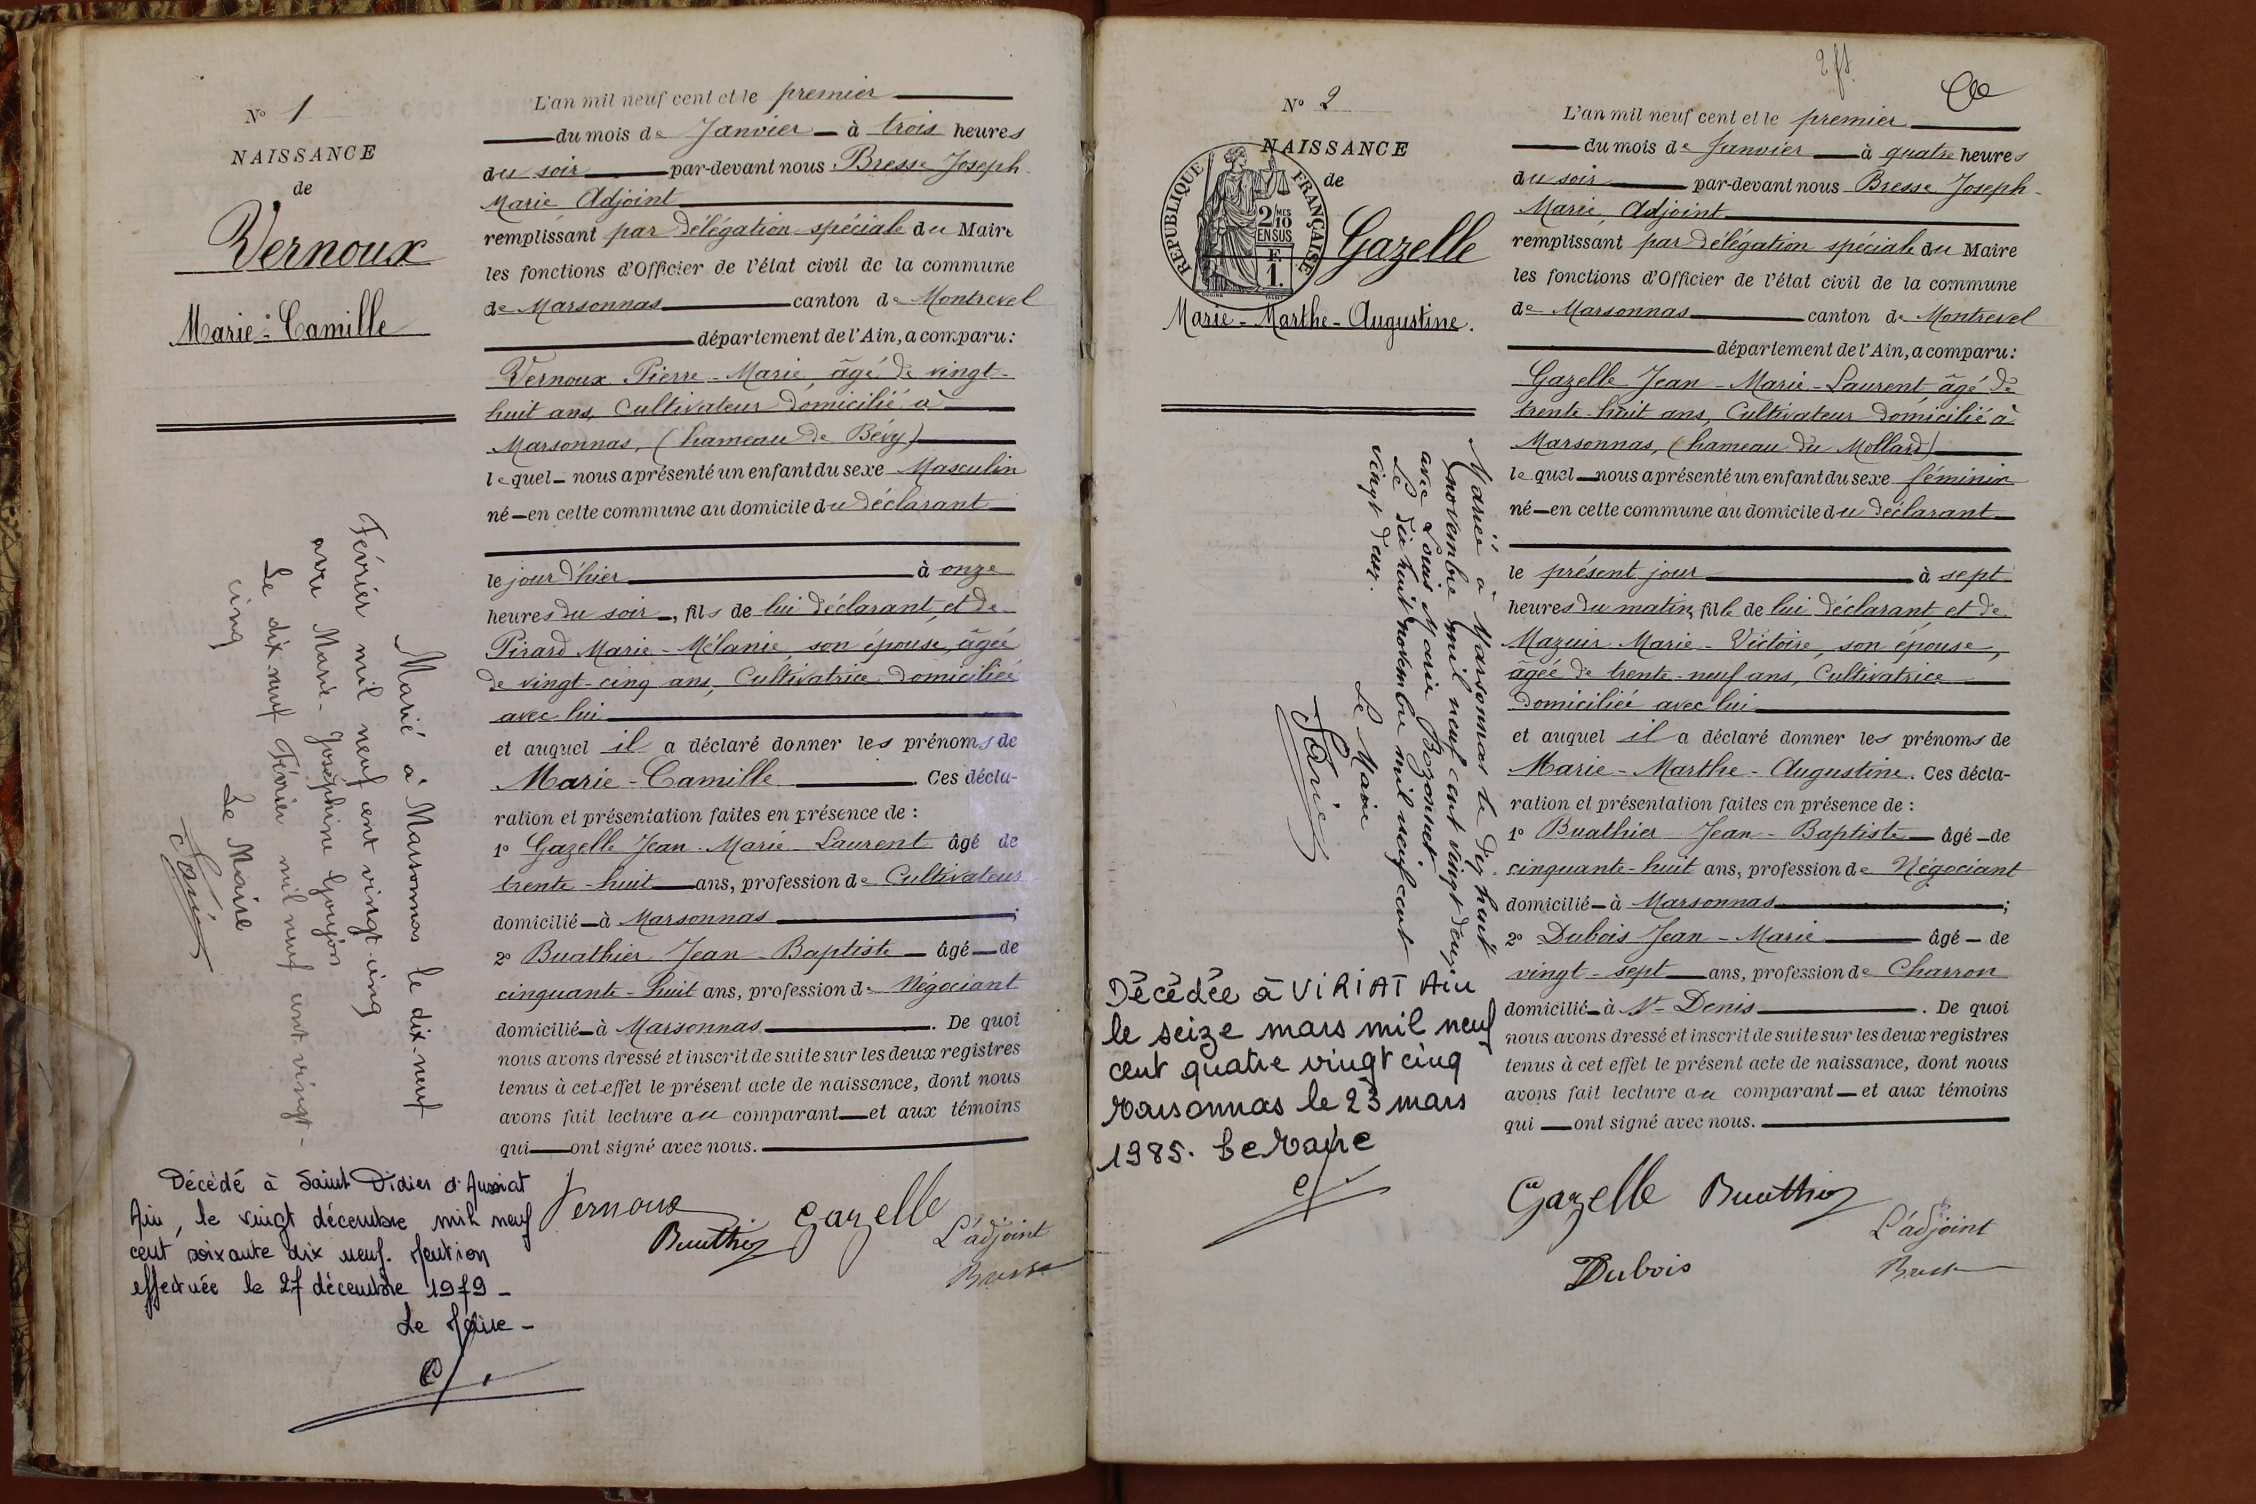 N° 1
NAISSANCE
de
Vernoux
Marie-Camille
L'an mil neuf cent et le premier
du mois de Janvier à trois heures
du soir par-devant nous Bresse Joseph
Marie Adjoint
remplissant par délégation spéciale du Maire
les fonctions d'Officier de l'état civil de la commune
de Marsonnas canton de Montrevel
département de l'Ain, a comparu:
Vernoux Pierre-Marie, âgé de vingt-
huit ans, Cultivateur domicilié à
Marsonnas, (hameau de Bévy)
lequel nous a présenté un enfant du sexe Masculin
né en cette commune au domicile du déclarant
le jour d'hier à onze
heures du soir, fils de lui déclarant, et de
Pirard Marie-Mélanie, son épouse, âgée
de vingt-cinq ans, Cultivatrice domiciliée
avec lui
et auquel il a déclaré donner les prénoms de
Marie-Camille. Ces décla-
ration et présentation faites en présence de :
1° Gazelle Jean-Marie-Laurent âgé de
trente-huit ans, profession de Cultivateur
domicilié à Marsonnas ;
2° Buathier Jean-Baptiste âgé de
cinquante-huit ans, profession de Négociant
domicilié à Marsonnas. De quoi
nous avons dressé et inscrit de suite sur les deux registres
tenus à cet effet le présent acte de naissance, dont nous
avons fait lecture au comparant et aux témoins
qui ont signé avec nous.
Vernoux
Buathier
Gazelle
L'adjoint
Bresse
Marié à Marsonnas le dix-neuf
Février mil neuf cent vingt-cinq
avec Marie-Joséphine Goujon
Le dix neuf Février mil neuf cent vingt-
cinq
Le Maire
Décédé à Saint Didier d'Aussiat
Ain, le vingt décembre mil neuf
cent soixante dix neuf. Mention
effectuée le 27 décembre 1979 -
Le Maire -
N° 2
NAISSANCE
de
RÉPUBLIQUE FRANÇAISE
2/10MES
EN SUS
F.
1.
Gazelle
Marie-Marthe-Augustine.
L'an mil neuf cent et le premier
du mois de Janvier à quatre heures
du soir par-devant nous Bresse Joseph-
Marie, Adjoint
remplissant par délégation spéciale du Maire
les fonctions d'Officier de l'état civil de la commune
de Marsonnas canton de Montrevel
département de l'Ain, a comparu:
Gazelle Jean-Marie-Laurent âgé de
trente-huit ans, Cultivateur domicilié à
Marsonnas, (hameau du Mollard)
lequel nous a présenté un enfant du sexe féminin
né en cette commune au domicile du déclarant
le présent jour à sept
heures du matin, fille de lui déclarant et de
Mazuir Marie-Victoire, son épouse,
âgée de trente-neuf ans, Cultivatrice
domiciliée avec lui
et auquel il a déclaré donner les prénoms de
Marie-Marthe-Augustine. Ces décla-
ration et présentation faites en présence de :
1° Buathier Jean-Baptiste âgé de
cinquante-huit ans, profession de Négociant
domicilié à Marsonnas ;
2° Dubois Jean-Marie âgé de
vingt-sept ans, profession de Charron
domicilié à St-Denis. De quoi
nous avons dressé et inscrit de suite sur les deux registres
tenus à cet effet le présent acte de naissance, dont nous
avons fait lecture au comparant et aux témoins
qui ont signé avec nous.
Gazelle
Buathier
L'adjoint
Dubois
Bresse
Mariée à Marsonnas le dix huit
novembre mil neuf cent vingt deux
avec Louis Marie Bozonnet
Le dix huit novembre mil neuf cent
vingt deux.
Le Maire
Décédée à VIRIAT Ain
le seize mars mil neuf
cent quatre vingt cinq
Marsonnas le 23 mars
1985. Le Maire